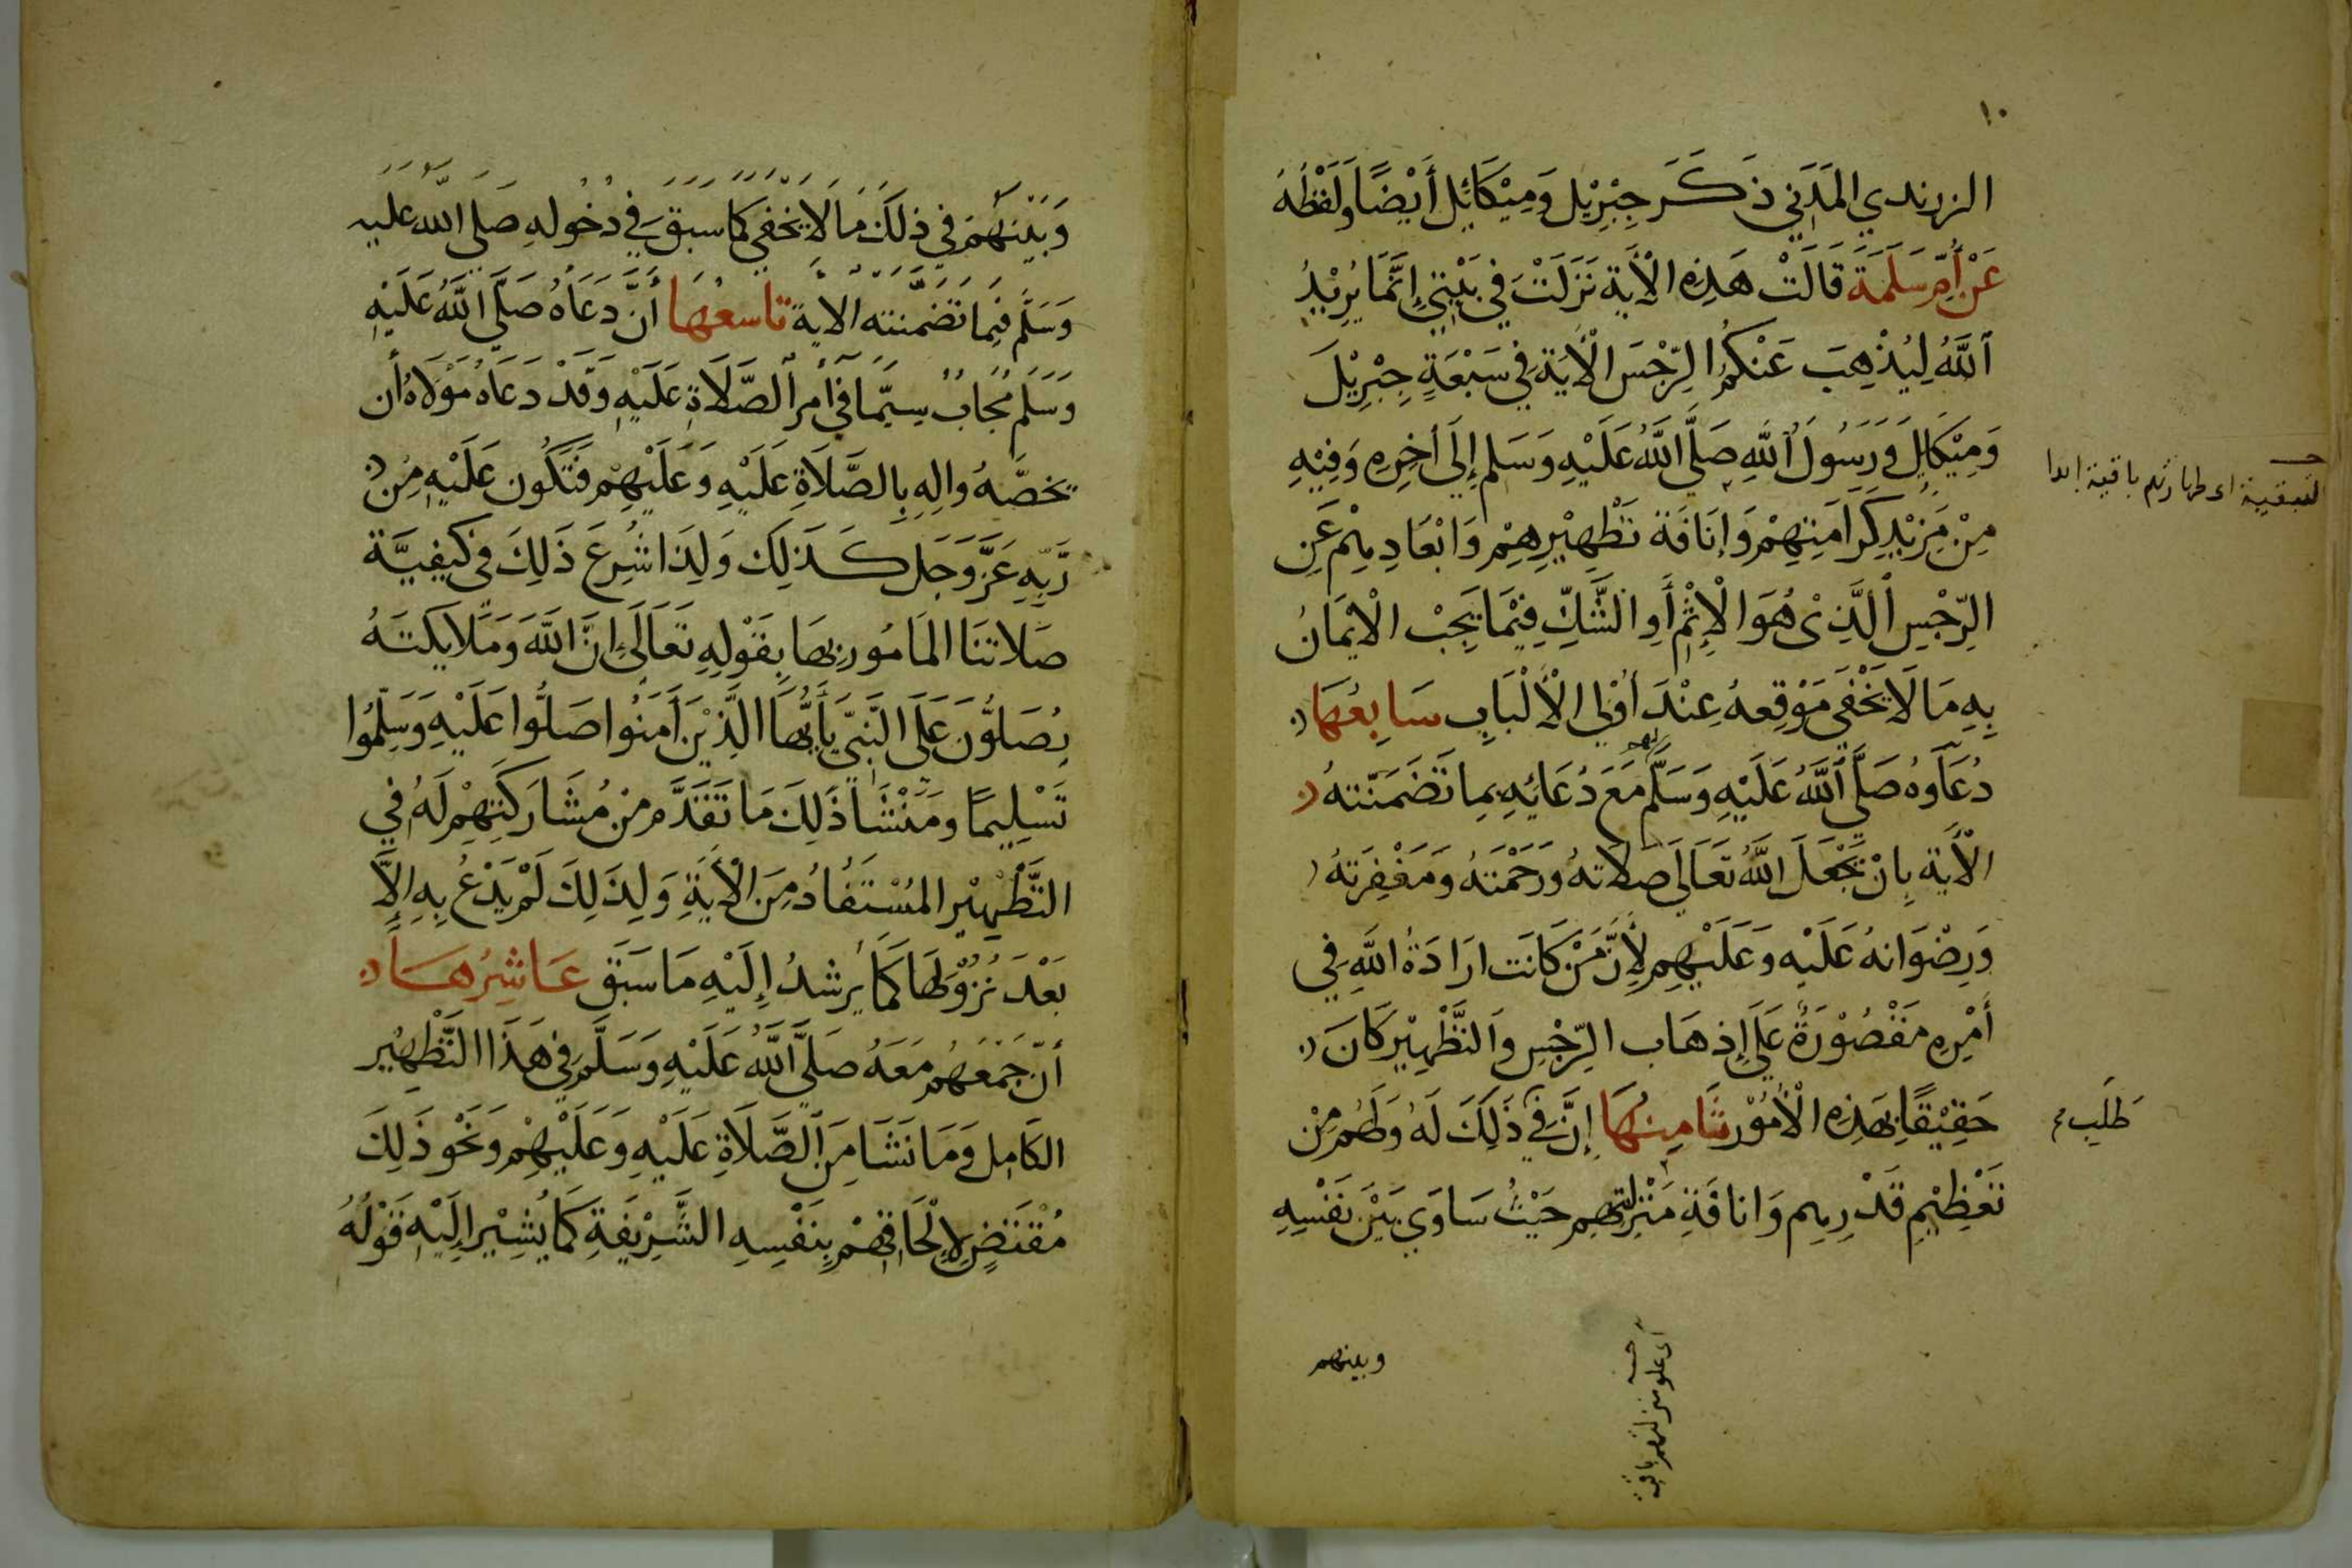 ١٠
الزرندي المَدَنِي ذَكَرَ جِبْرِيْل وَمِيْكَائِل أَيْضًا وَلَفْظُهُ
عَنْ أُمِّ سَلَمَةَ قَالَتْ هَذِهِ الْأَيَة نَزَلَتْ فِي بَيْتِي إِنَّمَا يُرِيْدُ
اَللَّهُ لِيُذْهِبَ عَنْكُمُ الرِّجْسَ الْأَيَة فِي سَبْعَةٍ جِبْرِيْلَ
وَمِيْكَايِلَ وَرَسُولَ اللَّهِ صَلَّى اللَّهُ عَلَيْهِ وَسَلم إِلَى أخِرِهِ وَفِيْهِ
مِنْ مَزِيْدِ كَرَامَتِهِمْ وَإِنَافَة تَطْهِيْرِهِمْ وَابْعَادِهِمْ عَنِ
الرِّجْسِ الَّذِيْ هُوَ الْإِثْمُ أَوِ الشَّكِّ فِيْمَا يَجِبُ الْايْمَانُ
بِهِ مَا لَا يَخْفَى مَوْقِعهُ عِنْدَ أُوْلِي الْأَلْبَابِ سَابِعُهَا
دُعَاوهُ صَلَّى اللَّهُ عَلَيْهِ وَسَلَّمَ لهم مَعَ دُعَائِهِ بِمَا تَضَمَنَتهُ
الْأَيَة بِانْ يَجْعَلَ اللَّهُ تَعَالَى صَلَاتهُ وَرَحْمَتَهُ وَمَغْفِرَتهُ
وَرِضْوَانهُ عَلَيْهِ وَعَلَيْهِم لِأَنَّ مَنْ كَانَت ارَادَةُ اللَّهِ فِي
أَمْرِهِ مَقْصُوْرَةٌ عَلَى إِذهَاب الرِّجْسِ وَالتَّطْهِيْرِ كَانَ
حَقِيْقًا بِهَذِهِ الْأُمُوْر ثَامِنُهَا إِنَّ فِي ذَلِكَ لَهُ وَلَهُم مِنْ
تَعْظِيْمِ قَدْرِهِم وَانَافَةِ مَنْزِلَتِهِم حَيْثُ سَاوَى بَيْنَ نَفْسِهِ
وبينهم
اى علو منزلتهم باقية
اى طهارتهم باقية ابدا
طَلَب
وَبَيْنَهُمْ فِي ذلِكَ مَا لَا يَخْفَى كَمَا سَبَقَ فِي دخُولِهِ صَلى اللَّه عليه
وَسَلَّم فِيمَا تَضَمَّنَته الايَة تاسعُهَا أَنَّ دَعَاهُ صَلَّى اللَّهُ عَلَيْهِ
وَسَلَم مُجَابٌ سيَّمَا فِي أَمرِ الصَّلَاةِ عَلَيْهِ وَقَدْ دَعَاهُ مَوْلَاهُ أَن
يخصَّهُ والِهِ بِالصَّلَاةِ عَلَيْهِ وَعَلَيْهِمْ فَتَكُون عَلَيْهِ مِن
رَّبِّهِ عَزَّوَجَل كَذَلِك وَلِذَا شُرِعَ ذَلِكَ فِي كَيفِيَّة
صَلَاتنَا المَامُور بِهَا بِقَوْلِهِ تَعَالَى إِنَّ اللَّهَ وَمَلَايكتَهُ
يُصَلُّوَنَ عَلَى النَّبِيِّ يَأَيُّهَا الَّذِيْنَ أَمَنُوا صَلُّوا عَلَيْهِ وَسَلِّمُوا
تَسْلِيمًا وَمَنْشَا ذَلِكَ مَا تَقَدَّم مِنْ مُشَارَكَتِهِمْ لَهُ فِي
التَّطْهِيْرِ المُسْتَفَادُ مِنَ الْأيَةِ وَلِذَلِكَ لَمْ يَدْعُ بِهِ إِلَّا
بَعْدَ نُزُوْلِهَا كَمَا يُرشدُ إِلَيْهِ مَا سَبَقَ عَاشِرُهَا
أنّ جَمْعَهُم مَعَهُ صَلَّى اللَّهُ عَلَيْهِ وَسَلَّمَ فِي هَذَا التَّطْهِيْرِ
الكَامِل وَمَا نَشَا مِن الصَّلَاةِ عَلَيْهِ وَعَلَيْهِمْ وَنَحْو ذَلِكَ
مُقْتَضٍ لِإِلْحَاقِهِمْ بِنَفْسِهِ الشَّرِيْفَةِ كَمَا يُشِيْر إِلَيْهِ قَوْلُهُ